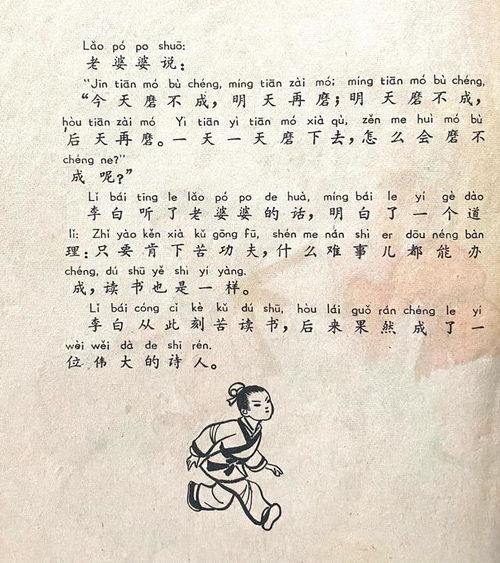 Lǎo pó po shuō:
老婆婆说：
“Jīn tiān mó bù chéng, míng tiān zài mó; míng tiān mó bù chéng,
“今天磨不成，明天再磨；明天磨不成，
hòu tiān zài mó Yì tiān yì tiān mó xià qù, zěn me huì mó bù
后天再磨。一天一天磨下去，怎么会磨不
chéng ne?”
成呢？”
Lǐ bái tīng le lǎo pó po de huà, míng bái le yí gè dào
李白听了老婆婆的话，明白了一个道
lǐ: Zhǐ yào kěn xià kǔ gōng fū, shén me nán shì er dōu néng bàn
理：只要肯下苦功夫，什么难事儿都能办
chéng, dú shū yě shì yí yàng.
成，读书也是一样。
Lǐ bái cóng cǐ kè kǔ dú shū, hòu lái guǒ rán chéng le yí
李白从此刻苦读书，后来果然成了一
wèi wěi dà de shī rén.
位伟大的诗人。